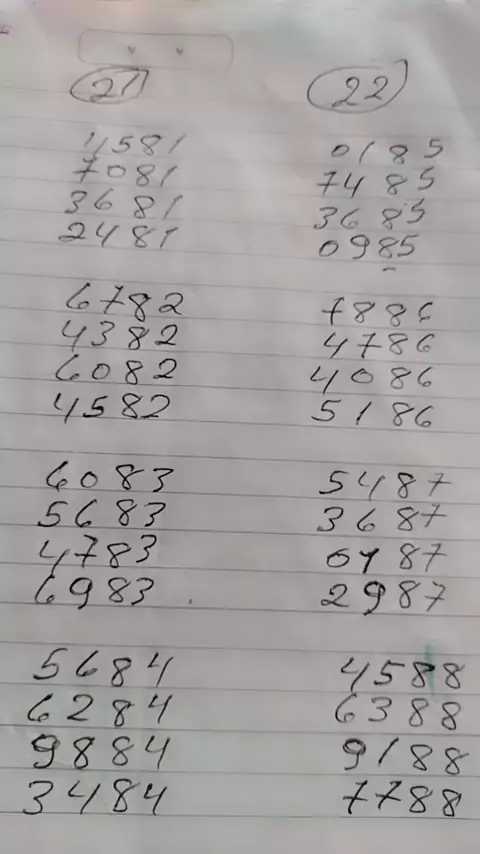 21
4581
7081
3681
2481
6782
4382
6082
4582
6083
5683
4783
6983
5684
6284
9884
3484
22
0185
7485
3685
0985
7886
4786
4086
5186
5487
3687
0787
2987
4588
6388
9188
7788